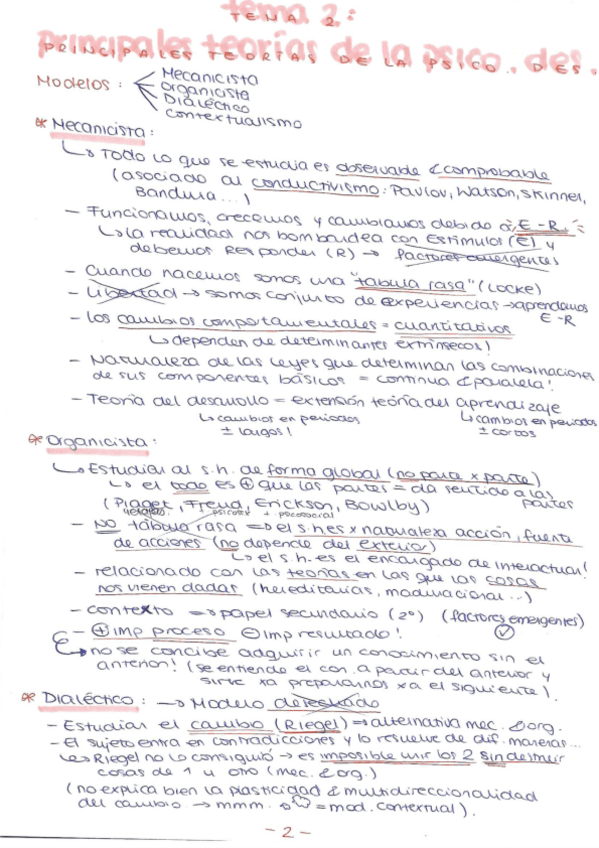 tema 2:
TEMA 2
principales teorías de la psico. des.
PRINCIPALES TEORÍAS DE LA PSICO. DES.
Modelos: Mecanicista
Organicista
Dialéctico
Contextualismo
* Mecanicista:
↳ Todo lo que se estudia es observable & comprobable
(asociado al conductivismo: Pavlov, Watson, Skinner,
Bandura...)
- Funcionamos, crecemos y cambiamos debido a "E-R."
↳ la realidad nos bombardea con Estímulos (E) y
debemos Responder (R) → factores emergentes
- Cuando nacemos somos una "tabula rasa" (Locke)
- Libertad → somos conjunto de experiencias → aprendemos
E-R
- Los cambios comportamentales = cuantitativos
↳ dependen de determinantes extrínsecos!
- Naturaleza de las leyes que determinan las combinaciones
de sus componentes básicos = continua & paralela!
- Teoría del desarrollo = extensión teoría del aprendizaje
↳ cambios en periodos ↳ cambios en periodos
± largos! ± cortos
* Organicista:
↳ Estudiar al s.h. de forma global (no parte x parte)
↳ el todo es ⊕ que las partes = da sentido a las
partes
(Piaget, Freud, Erickson, Bowlby)
psicosex + psicosocial
- NO tábula rasa ⇒ el s.h es x naturaleza acción, fuente
de acciones (no depende del exterior)
↳ el s.h. es el encargado de interactuar!
- relacionado con las teorías en las que las cosas
nos vienen dadas (hereditarias, maduracional...)
- contexto ⇒ papel secundario (2º) (factores emergentes)
✓
- ⊕ imp proceso ⊖ imp resultado!
↳ no se concibe adquirir un conocimiento sin el
anterior! (se entiende el con. a partir del anterior y
sirve xa prepararnos xa el siguiente).
* Dialéctico: → Modelo desechado
- Estudiar el cambio (Riegel) ⇒ alternativa mec. & org.
- El sujeto entra en contradicciones y lo resuelve de dif. maneras...
↳ Riegel no lo consiguió → es imposible unir los 2 sin destruir
cosas de 1 u otro (mec. & org.)
(no explica bien la plasticidad & multidireccionalidad
del cambio → mmm. = mod. contextual).
- 2 -